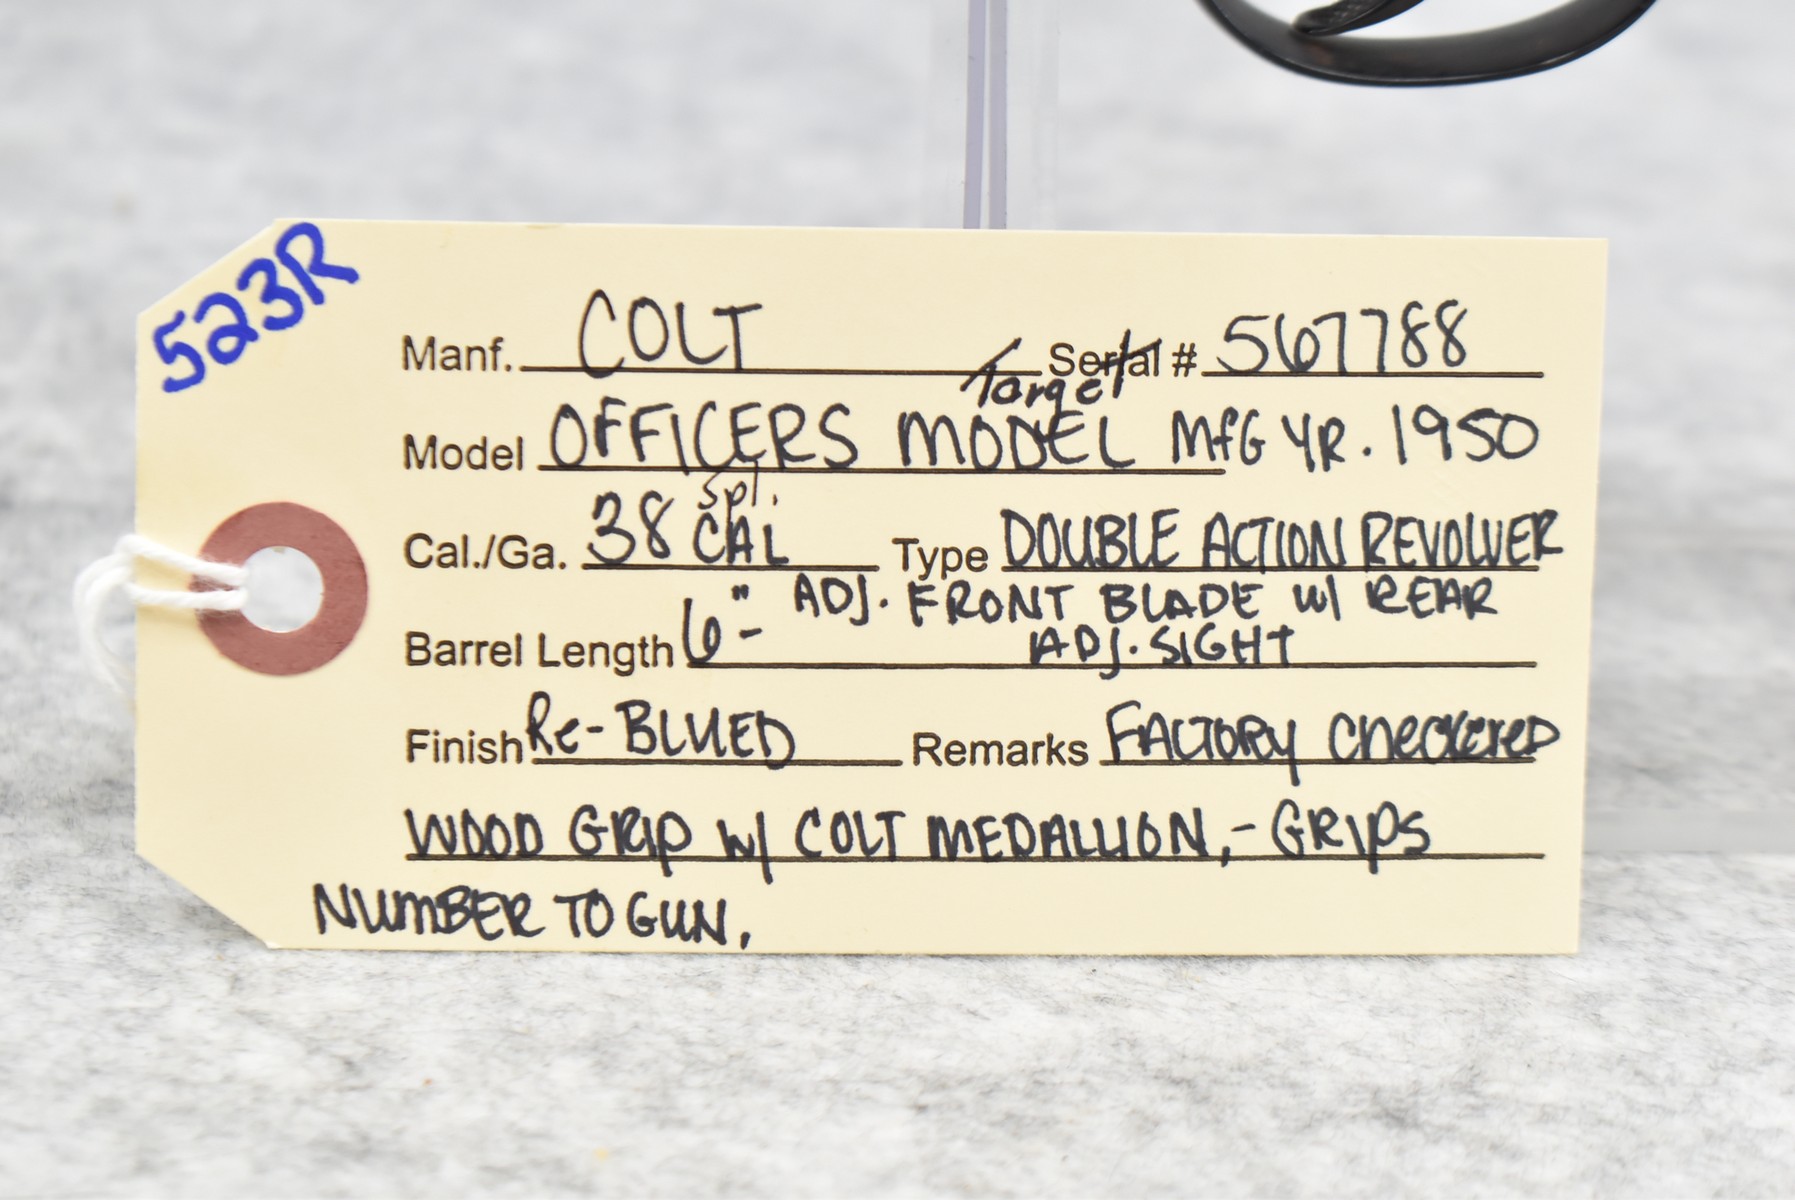 523R
Manf. COLT Serial # 567788
Target
Model OFFICERS MODEL MFG YR. 1950
Spl.
Cal./Ga. 38 CAL Type DOUBLE ACTION REVOLVER
Barrel Length 6" - ADJ. FRONT BLADE W/ REAR
ADJ. SIGHT
Finish Re-BLUED Remarks FACTORY CHeCKereD
WOOD GRIP W/ COLT MEDALLION, - GRIPS
NUMBER TO GUN.